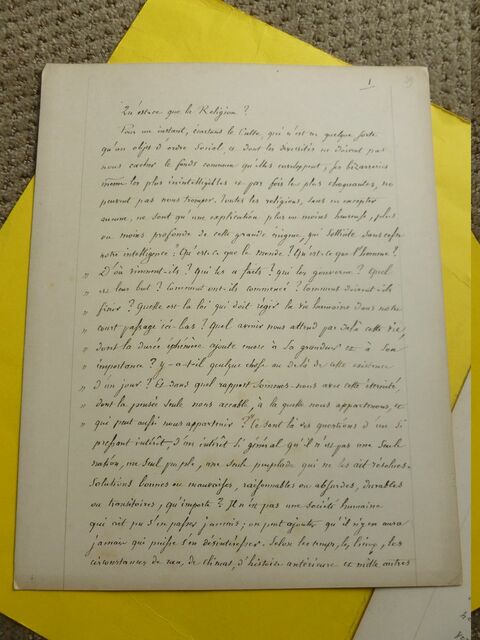 1
39
Qu'est-ce que la Religion ?
Pour un instant, écartons le Culte, qui n'est en quelque sorte
qu'un objet d'ordre Social, et dont les diversités ne doivent pas
nous cacher le fond commun qu'elles enveloppent ; ses bizarreries
même les plus inintelligibles et par fois les plus choquantes, ne
peuvent pas nous tromper. Toutes les religions, sans en excepter
aucune, ne sont qu'une explication plus ou moins heureuse, plus
ou moins profonde de cette grande énigme, qui sollicite sans cesse
notre intelligence : Qu'est-ce que le monde ? Qu'est-ce que l'homme ?
" D'où viennent-ils ? Qui les a faits ? qui les gouverne ? Quel
" est leur but ? Comment ont-ils commencé ? Comment doivent-ils
" finir ? Quelle est la loi qui doit régir la vie humaine dans notre
" court passage ici-bas ? Quel avenir nous attend par delà cette vie,
" dont la durée éphémère ajoute encore à sa grandeur et à son
" importance ? y-a-t-il quelque chose au delà de cette existence
" d'un jour ? Et dans quel rapport sommes-nous avec cette éternité,
" dont la pensée seule nous accable, à la quelle nous appartenons, et
" qui peut aussi nous appartenir ? Ce sont là des questions d'un si
pressant intérêt, d'un intérêt si général qu'il n'est pas une seule
nation, un seul peuple, une seule peuplade qui ne les ait résolues.
Solutions bonnes ou mauvaises, raisonnables ou absurdes, durables
ou transitoires, qu'importe ? Il n'est pas une société humaine
qui ait pu s'en passer jamais ; on peut ajouter qu'il n'y en aura
jamais qui puisse s'en désintéresser. Selon les temps, les lieux, les
circonstances de race, de climat, d'histoire antérieure et mille autres